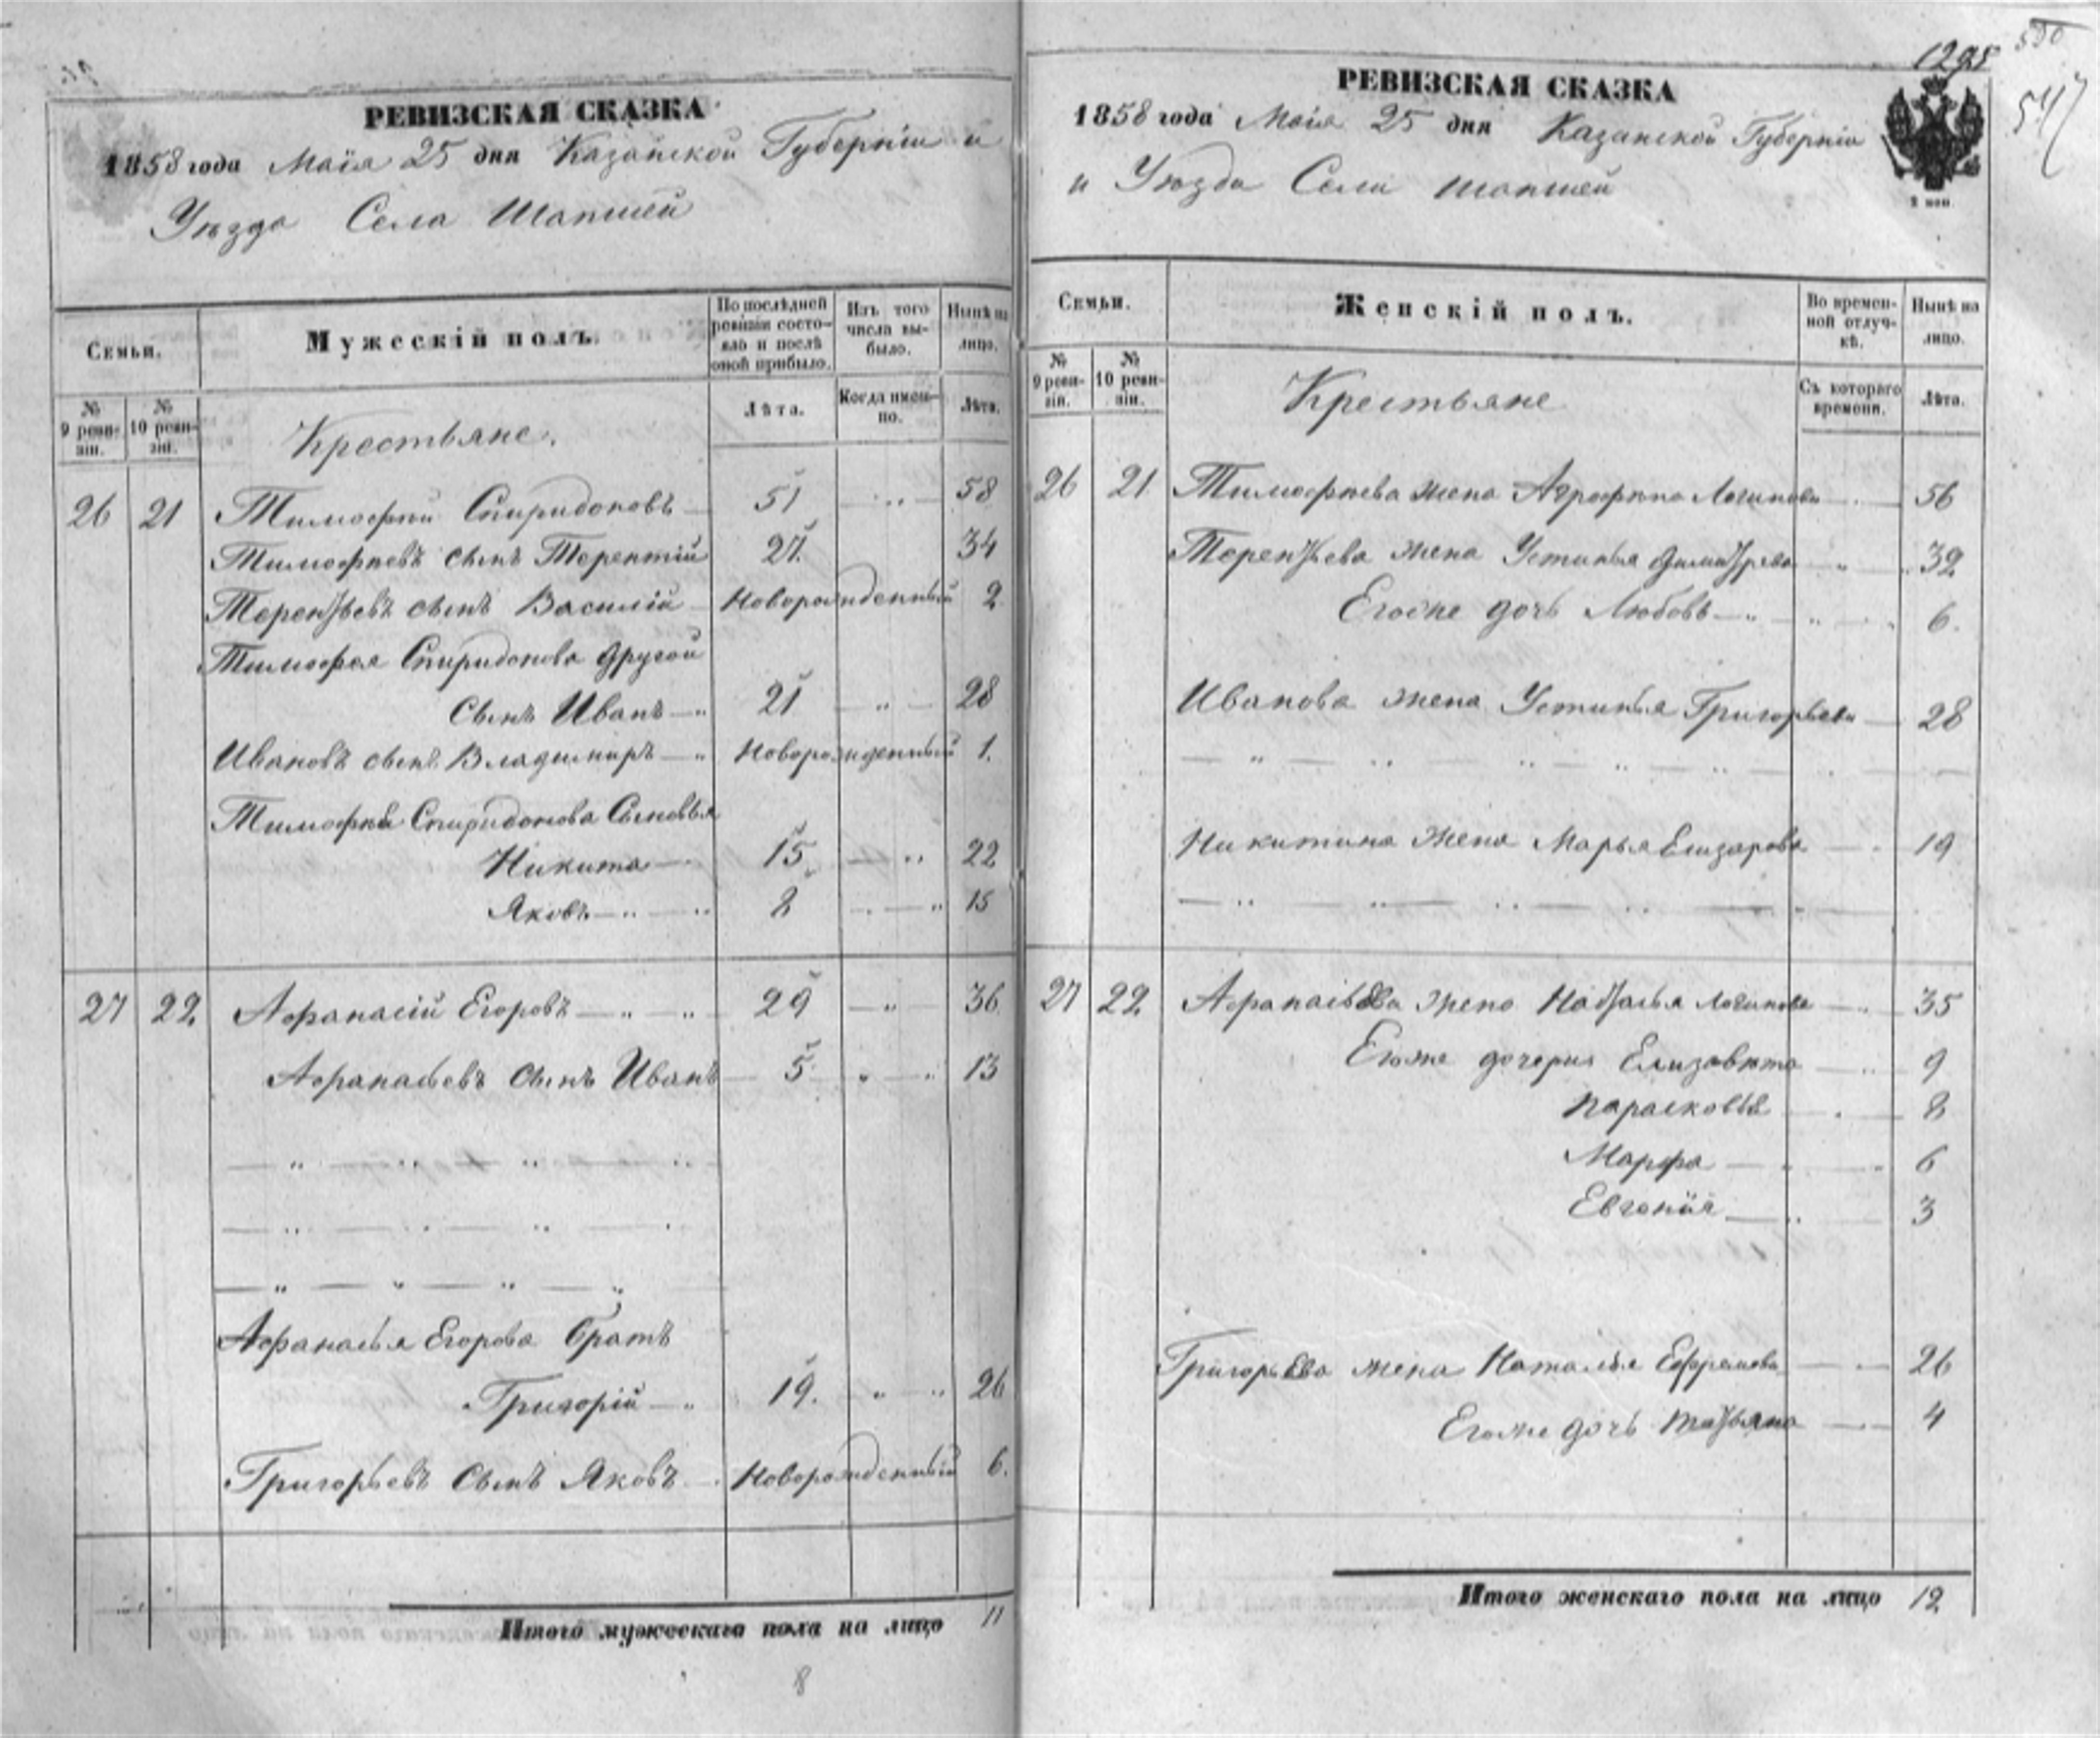 РЕВИЗСКАЯ СКАЗКА
1858 года Маія 25 дня Казанской Губерніи и
Уѣзда Села Шапшей
Семьи.
Мужескій полъ.
По послѣдней ревизіи состояло и послѣ оной прибыло.
Изъ того числа выбыло.
Нынѣ на лицо.
№ 9 ревизіи.
№ 10 ревизіи.
Крестьяне.
Лѣта.
Когда именно.
Лѣта.
26 21 Тимофей Спиридоновъ 51 58
Тимофеевъ сынъ Терентій 27. 34
Терентьевъ сынъ Василій Новорожденный 2
Тимофея Спиридонова другой
Сынъ Иванъ 21 28
Ивановъ сынъ Владимиръ Новорожденный 1.
Тимофея Спиридонова Сыновья
Никита 15. 22
Яковъ 8 15
27 22. Афанасій Егоровъ 29 36
Афанасьевъ сынъ Иванъ 5 13
Афанасья Егорова братъ
Григорій 19. 26
Григорьевъ сынъ Яковъ Новорожденный 6.
Итого мужескаго пола на лицо 11
8
1295
547
РЕВИЗСКАЯ СКАЗКА
1858 года Маія 25 дня Казанской Губерніи
и Уѣзда Села Шапшей
Семьи.
Женскій полъ.
Во временной отлучкѣ.
Нынѣ на лицо.
№ 9 ревизіи.
№ 10 ревизіи.
Крестьяне
Съ котораго времени.
Лѣта.
26 21 Тимофеева жена Аграфена Логинова 56
Терентьева жена Устинья Димитрева 32
Егоже дочь Любовь 6.
Иванова жена Устинья Григорьева 28
Никитина жена Марья Елизарова 19
27 22 Афанасьева жена Наталья Логинова 35
Егоже дочери Елизавета 9
Парасковья 8
Марфа 6
Евгенія 3
Григорьева жена Наталья Ефремова 26
Егоже дочь Татьяна 4
Итого женскаго пола на лицо 12